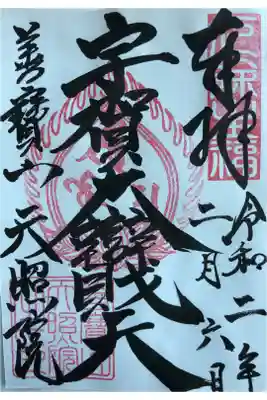 奉拝
令和二年
二月六日
宇賀大辯財天
善寳山天照院